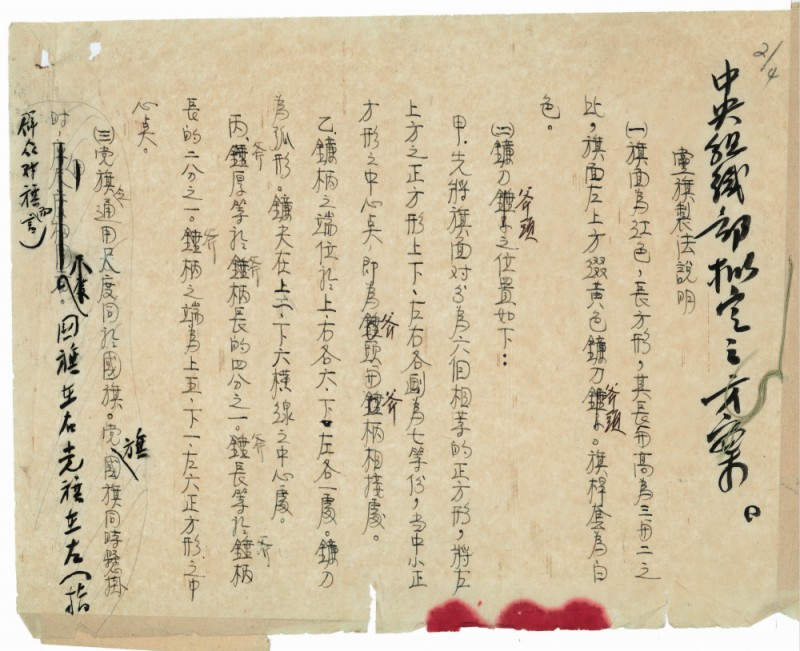 2/4
中央組織部拟定之方案
黨旗製法說明
㈠旗面為红色,長方形,其長与高為三与二之
比,旗面左上方綴黃色鐮刀斧頭。旗桿套為白
色。
㈡鐮刀斧頭之位置如下:
甲、先將旗面对分為六個相等的正方形,將左
上方之正方形上下、左右各劃為七等份,当中小正
方形之中心点,即為斧頭与斧柄相接處。
乙、鐮柄之端位於上、右各六、下、左各一處。鐮刀
為弧形。鐮尖在上一、下六橫線之中心處。
丙、斧厚等於斧柄長的四分之一。斧長等於斧柄
長的二分之一。斧柄之端為上五、下一、左六正方形之中
心点。
㈢党旗之通用尺度同於國旗。党旗國旗同時懸掛
时,國旗在右党旗在左(指
群众对旗而言)